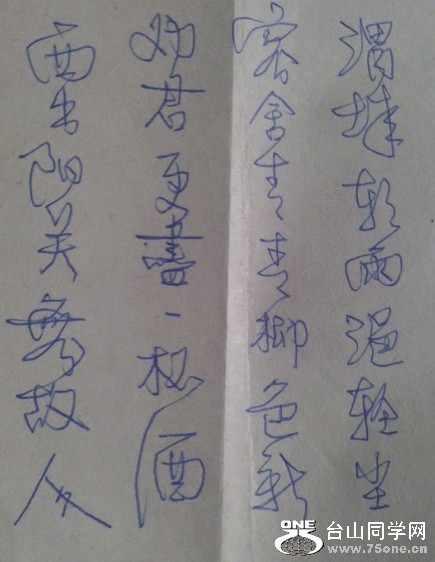 渭城朝雨浥轻尘
客舍青青柳色新
劝君更盡一杯酒
西出阳关無故人
ONE
台山同学网
www.75one.cn